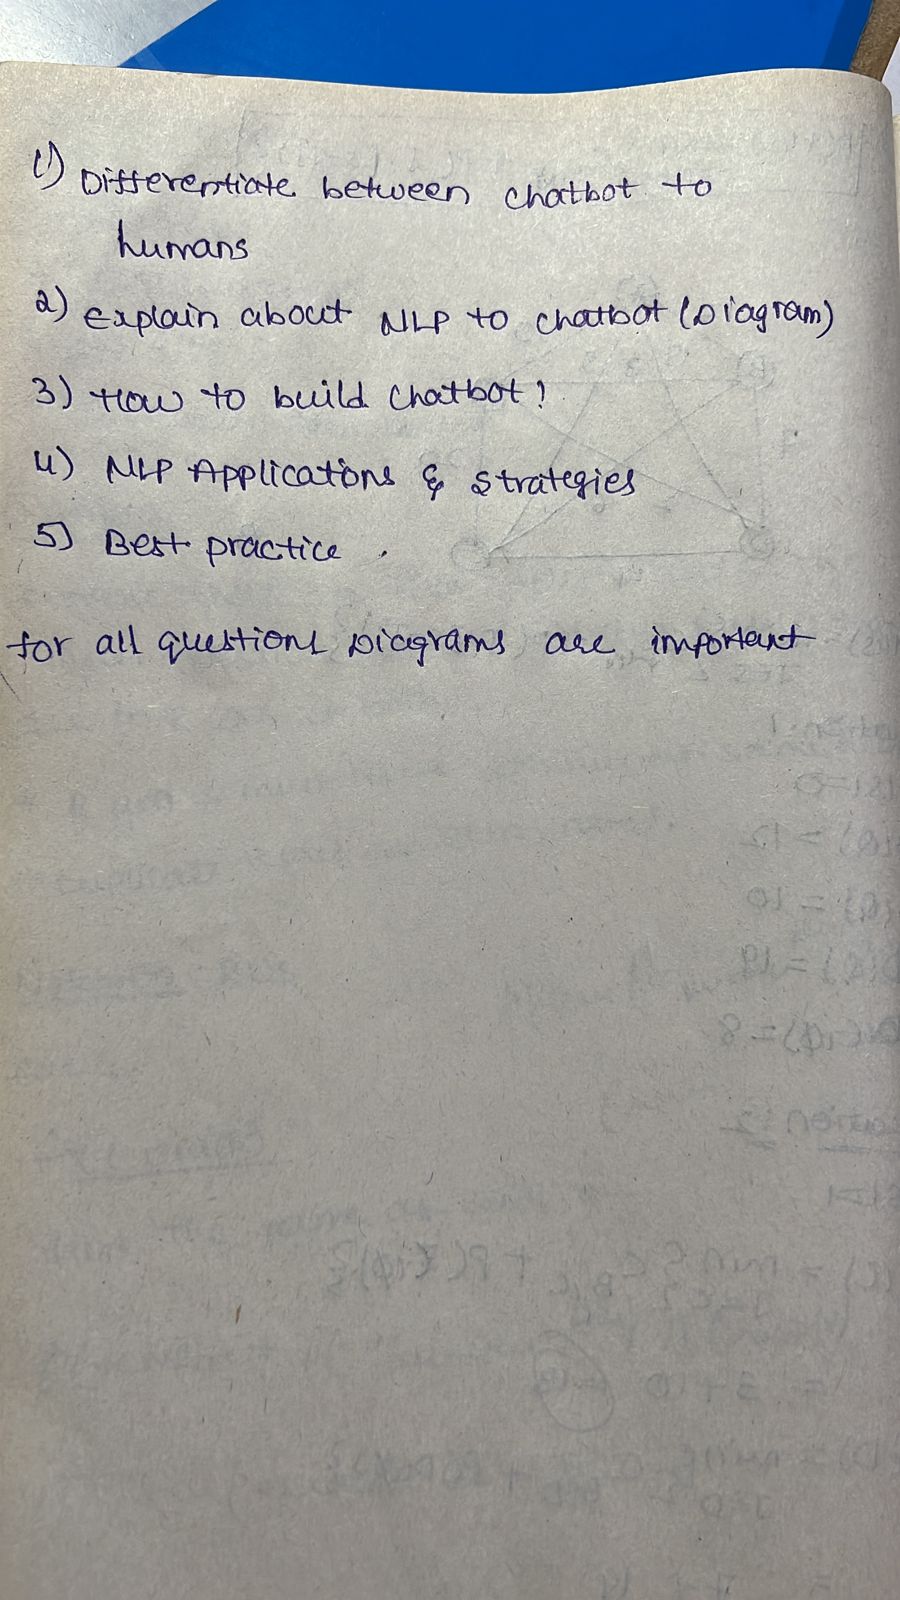 1) Differentiate between chatbot to
humans
2) explain about NLP to chatbot (Diagram)
3) How to build chatbot?
4) NLP Applications & strategies
5) Best practice.
for all questions Diagrams are important